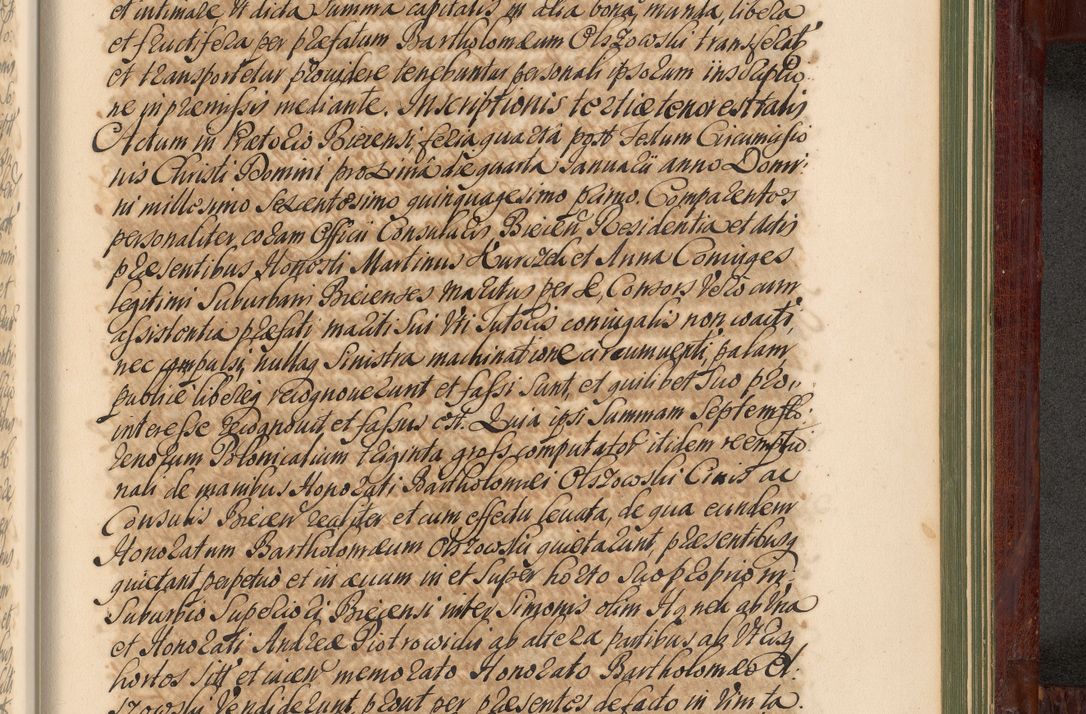 et intimare, Vt dicta Summa capitalis in alia bona, munda, libera
et fructifera per præfatum Bartholomæum Olszowski transferat
et transportetur providere tenebuntur personali ipsorum inscriptio
ne in præmissis mediante. Inscriptionis tertiæ tenor est talis
Actum in Prætorio Biecensi feria quarta post Festum Circumcisio
nis Christi Domini proxima die quarta Januarii anno Domi
ni millesimo Sexcentesimo quinquagesimo primo. Comparentes
personaliter coram Officii Consularis Biecen Residentia et actis
præsentibus Honesti Martinus Kurczek et Anna Coniuges
legitimi Suburbani Biecenses Maritus per se, Consors Vero cum
assistentia præfati mariti Sui Vti Tutoris coniugalis non coacti,
nec compulsi, nullaq Sinistra machinatione circumventi, palam
publice libereq recognoverunt et fassi Sunt, et quilibet Suo pro
interesse recognovit et fassus est. Quia ipsi Summam Septem flo
renorum Polonicalium triginta gross computator itidem reemptio
nali de manibus Honorati Bartholomei Olszowski Civis ac
Consulis Biecen realiter et cum effectu levata, de qua eundem
Honoratum Bartholomæum Olszowski quietarunt, præsentibusq
quietant perpetuo et in ævum in et Super horto Suo proprio in
Suburbio Superiori Biecensi inter Simonis olim Hynek ab Vna
et Honorati Andreæ Piotrowicki ab altera partibus ab Vtrisq
hortos Sitt et iacen memorato Honorato Bartholomæo Ol
szowski Vendiderunt, prout per præsentes de facto in Vim ta